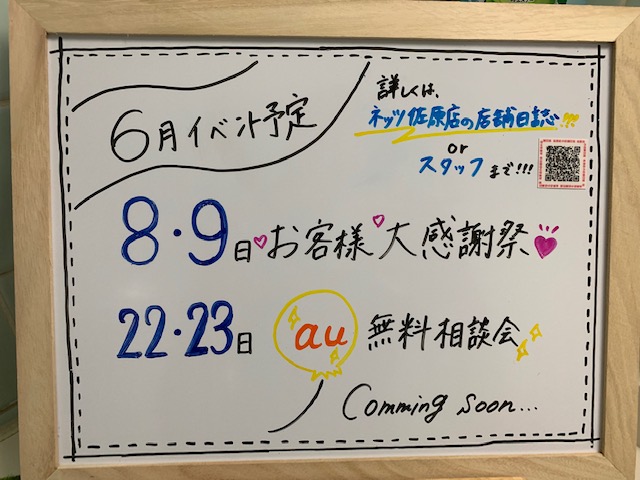 6月イベント予定
詳しくは、
ネッツ佐原店の店舗日誌!!!
or
スタッフまで!!!
8・9日♡お客様♡大感謝祭
22・23日 au 無料相談会
Comming soon...